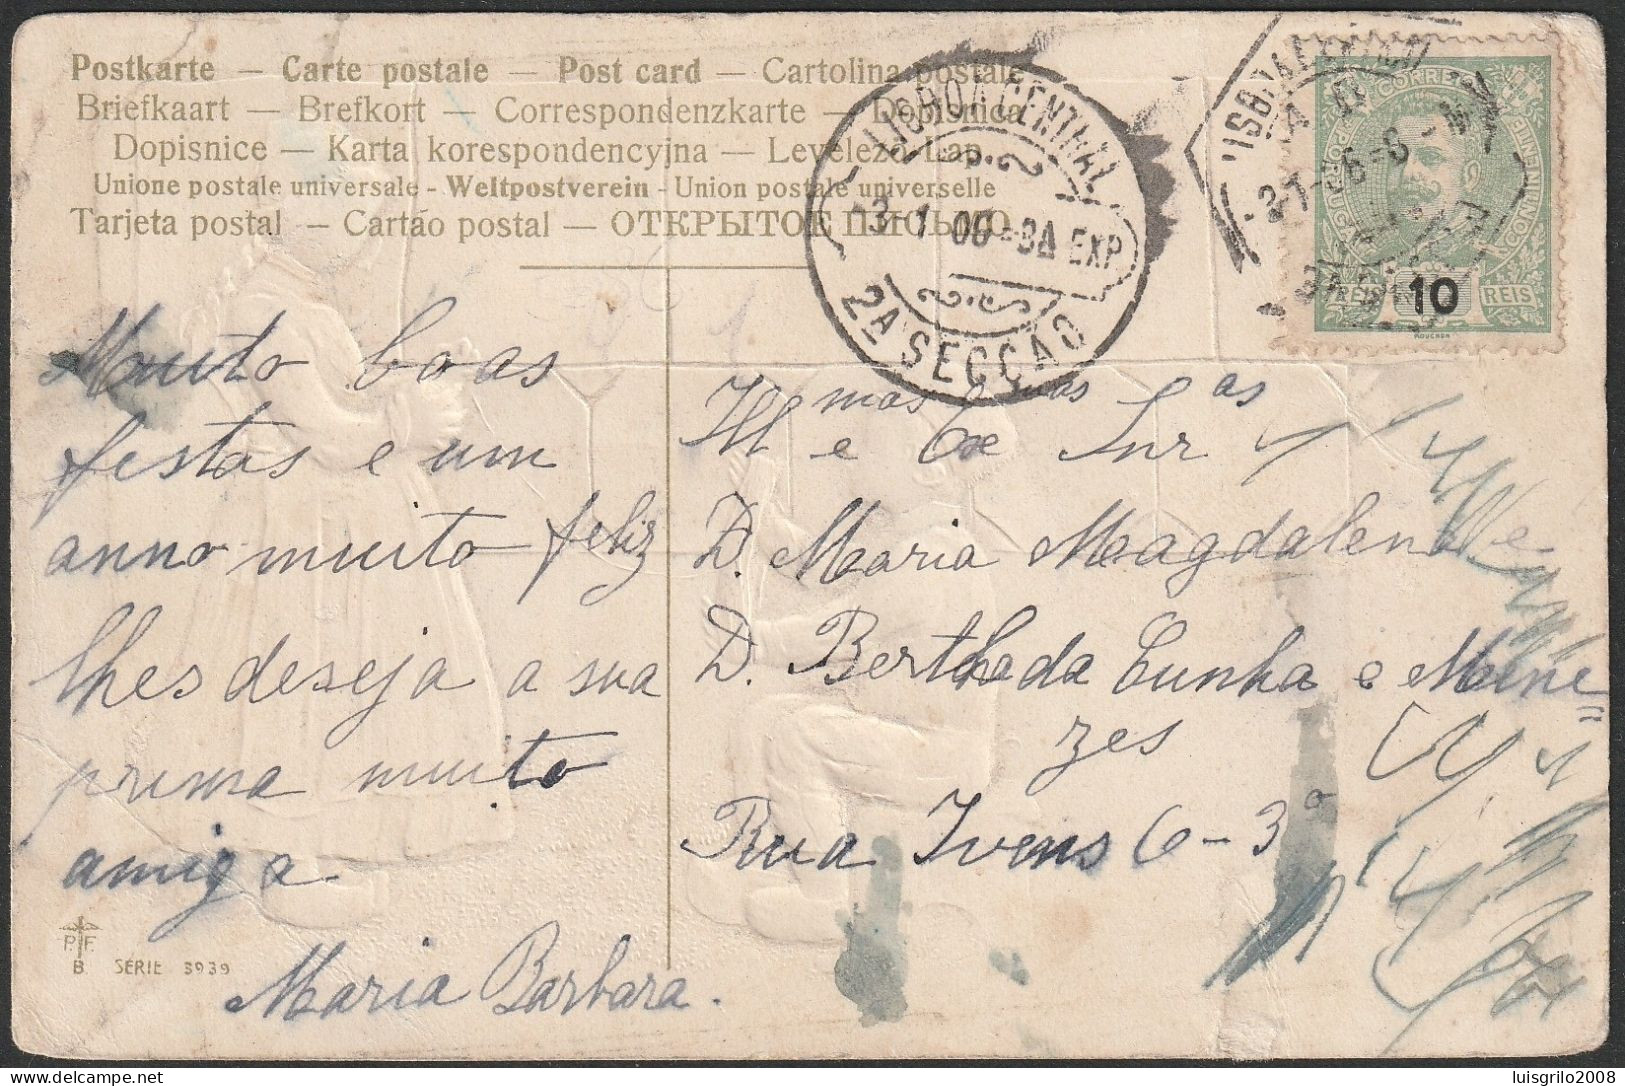 Postkarte — Carte postale — Post card — Cartolina postale
Briefkaart — Brefkort — Correspondenzkarte — Dopisnica
Dopisnice — Karta korespondencyjna — Levelező-Lap
Unione postale universale - Weltpostverein - Union postale universelle
Tarjeta postal — Cartão postal — ОТКРЫТОЕ ПИСЬМО
LISBOA CENTRAL
3-1 06-8A EXP
2A SECÇÃO
CORREIOS
10
REIS
MOUCHON
Muito boas
festas e um
anno muito feliz
lhes deseja a sua
prima muito
amiga
Maria Barbara.
Ill mas e Ex mas Snr as
D. Maria Magdalena e
D. Bertha da Cunha e Mene=
zes
Rua Ivens 6-3º
P. F.
B SERIE 3939
luisgrilo2008
delcampe.net